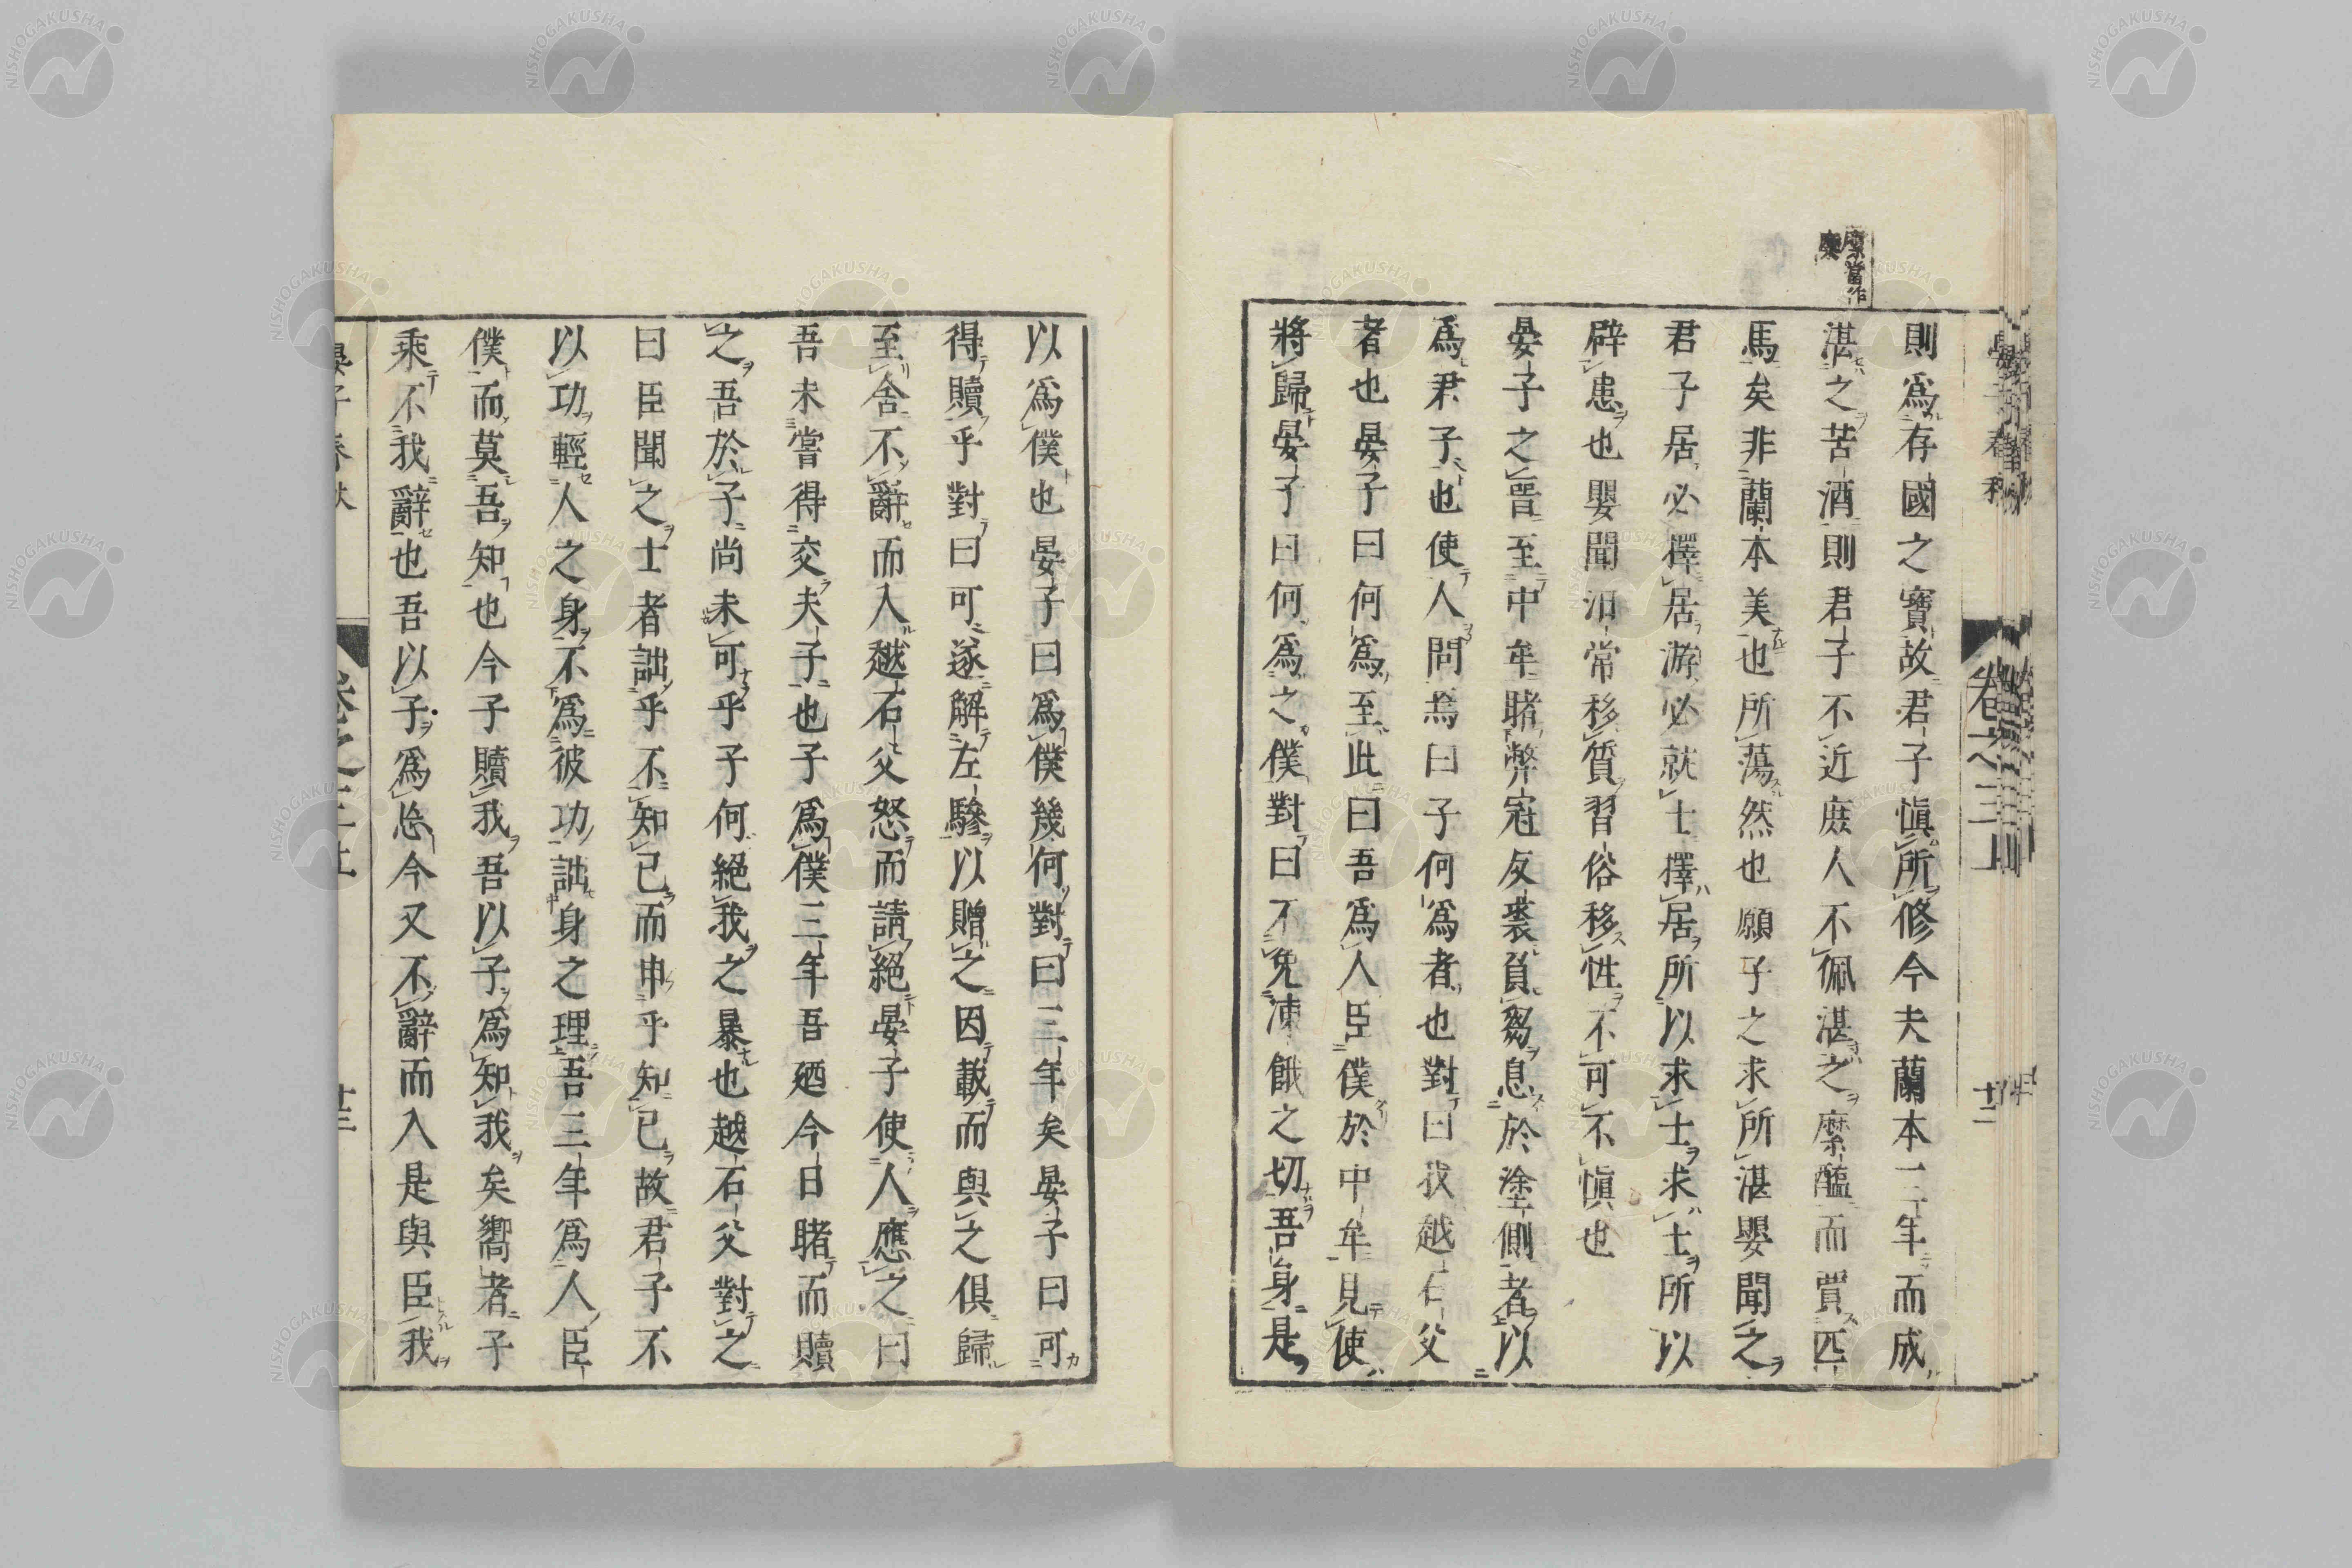 糜當作
麋
則爲存國之寶故君子愼所修今夫蘭本三年而成
湛之苦酒則君子不近庶人不佩湛之縻醢而賈匹
馬矣非蘭本美也所蕩然也願子之求所湛嬰聞之
君子居必擇居游必就士擇居所以求士求士所以
辟患也嬰聞汩常移質習俗移性不可不愼也
晏子之晉至中牟睹弊冠反裘負芻息於塗側者以
爲君子也使人問焉曰子何爲者也對曰我越石父
者也晏子曰何爲至此曰吾爲人臣僕於中牟見使
將歸晏子曰何爲之僕對曰不免凍餓之切吾身是
晏子春秋
卷之三上
十二
以爲僕也晏子曰爲僕幾何對曰三年矣晏子曰可
得贖乎對曰可遂解左驂以贈之因載而與之俱歸
至舍不辭而入越石父怒而請絕晏子使人應之曰
吾未嘗得交夫子也子爲僕三年吾廼今日睹而贖
之吾於子尚未可乎子何絕我之暴也越石父對之
曰臣聞之士者詘乎不知己而申乎知己故君子不
以功輕人之身不爲彼功詘身之理吾三年爲人臣
僕而莫吾知也今子贖我吾以子爲知我矣嚮者子
乘不我辭也吾以子爲忘今又不辭而入是與臣我
晏子春秋
卷之三上
十三
NISHOGAKUSHA